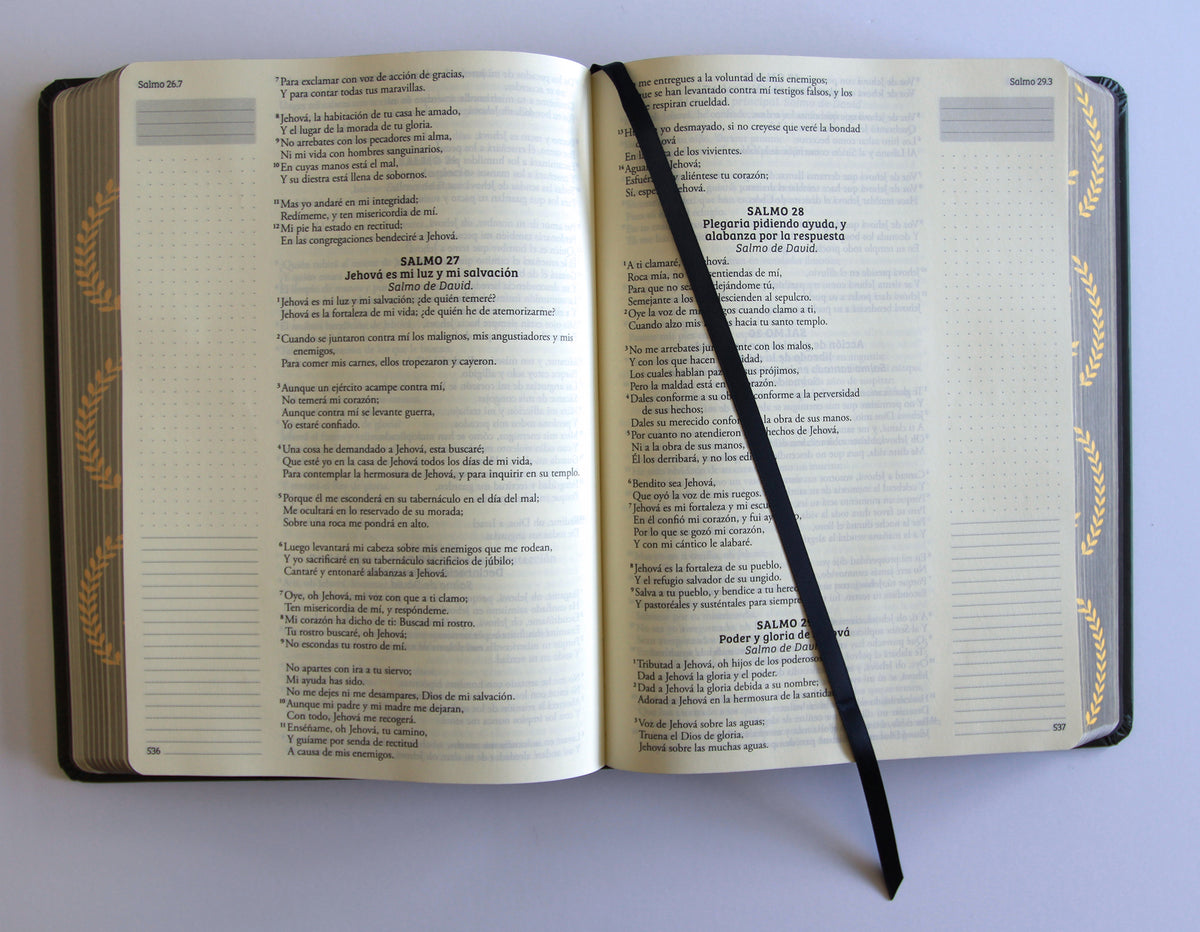 Salmo 26.7
7 Para exclamar con voz de acción de gracias,
Y para contar todas tus maravillas.
8 Jehová, la habitación de tu casa he amado,
Y el lugar de la morada de tu gloria.
9 No arrebates con los pecadores mi alma,
Ni mi vida con hombres sanguinarios,
10 En cuyas manos está el mal,
Y su diestra está llena de sobornos.
11 Mas yo andaré en mi integridad;
Redímeme, y ten misericordia de mí.
12 Mi pie ha estado en rectitud;
En las congregaciones bendeciré a Jehová.
SALMO 27
Jehová es mi luz y mi salvación
Salmo de David.
1 Jehová es mi luz y mi salvación; ¿de quién temeré?
Jehová es la fortaleza de mi vida; ¿de quién he de atemorizarme?
2 Cuando se juntaron contra mí los malignos, mis angustiadores y mis
enemigos,
Para comer mis carnes, ellos tropezaron y cayeron.
3 Aunque un ejército acampe contra mí,
No temerá mi corazón;
Aunque contra mí se levante guerra,
Yo estaré confiado.
4 Una cosa he demandado a Jehová, esta buscaré;
Que esté yo en la casa de Jehová todos los días de mi vida,
Para contemplar la hermosura de Jehová, y para inquirir en su templo.
5 Porque él me esconderá en su tabernáculo en el día del mal;
Me ocultará en lo reservado de su morada;
Sobre una roca me pondrá en alto.
6 Luego levantará mi cabeza sobre mis enemigos que me rodean,
Y yo sacrificaré en su tabernáculo sacrificios de júbilo;
Cantaré y entonaré alabanzas a Jehová.
7 Oye, oh Jehová, mi voz con que a ti clamo;
Ten misericordia de mí, y respóndeme.
8 Mi corazón ha dicho de ti: Buscad mi rostro.
Tu rostro buscaré, oh Jehová;
9 No escondas tu rostro de mí.
No apartes con ira a tu siervo;
Mi ayuda has sido.
No me dejes ni me desampares, Dios de mi salvación.
10 Aunque mi padre y mi madre me dejaran,
Con todo, Jehová me recogerá.
11 Enséñame, oh Jehová, tu camino,
Y guíame por senda de rectitud
A causa de mis enemigos.
536
Salmo 29.3
me entregues a la voluntad de mis enemigos;
que se han levantado contra mí testigos falsos, y los
respiran crueldad.
13 yo desmayado, si no creyese que veré la bondad
En la de los vivientes.
14 Jehová;
y aliéntese tu corazón;
Sí, Jehová.
SALMO 28
Plegaria pidiendo ayuda, y
alabanza por la respuesta
Salmo de David.
1 A ti clamaré,
Roca mía, no
Para que no dejándome tú,
Semejante a los descienden al sepulcro.
2 Oye la voz de mis cuando clamo a ti,
Cuando alzo mis hacia tu santo templo.
3 No me arrebates con los malos,
Y con los que hacen
Los cuales hablan paz sus prójimos,
Pero la maldad está en
4 Dales conforme a su conforme a la perversidad
de sus hechos;
Dales su merecido la obra de sus manos.
5 Por cuanto no atendieron hechos de Jehová,
Ni a la obra de sus manos,
Él los derribará, y no los
6 Bendito sea Jehová,
Que oyó la voz de mis ruegos.
7 Jehová es mi fortaleza y mi
En él confió mi corazón, y fui
Por lo que se gozó mi corazón,
Y con mi cántico le alabaré.
8 Jehová es la fortaleza de su pueblo,
Y el refugio salvador de su ungido.
9 Salva a tu pueblo, y bendice a tu
Y pastoréales y susténtales para siempre
SALMO 29
Poder y gloria de Jehová
Salmo de David.
1 Tributad a Jehová, oh hijos de los poderosos
Dad a Jehová la gloria y el poder.
2 Dad a Jehová la gloria debida a su nombre;
Adorad a Jehová en la hermosura de la
3 Voz de Jehová sobre las aguas;
Truena el Dios de gloria,
Jehová sobre las muchas aguas.
537